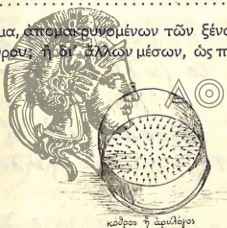 μα, ἀπομακρυνομένων τῶν ξένω
ρου; ἢ δι᾽ ἄλλων μέσων, ὡς π
ΑΘ
κόθρος ἢ ἀρυλόγος